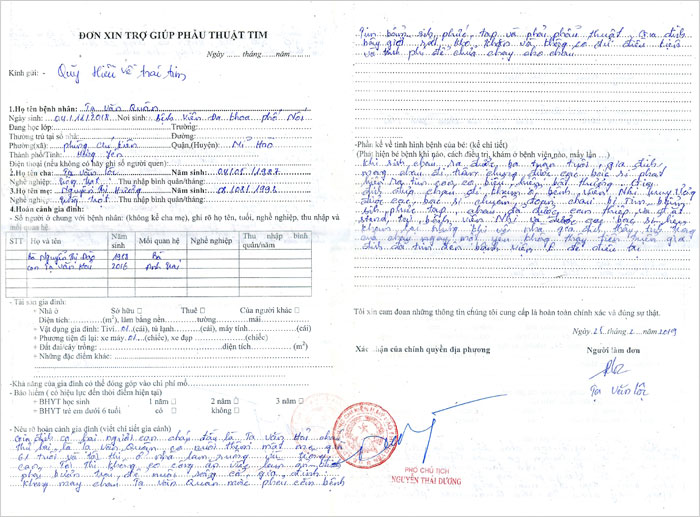 ĐƠN XIN TRỢ GIÚP PHẪU THUẬT TIM
Ngày ...... tháng......năm.........
Kính gửi: - Quỹ Hiểu về trái tim
1.Họ tên bệnh nhân: Tạ Văn Quân
Ngày sinh: 04/11/2018 Nơi sinh: Bệnh Viện Đa khoa phố Nối
Đang học lớp: Trường:
Thường trú tại số nhà: Đường:
Phường(xã): phùng Chí Kiên Quận,(Huyện): Mỹ Hào
Thành phố/Tỉnh: Hưng Yên
Điện thoại (nếu không có hãy ghi số người quen):
2.Họ tên cha: Tạ Văn Lộc Năm sinh: 04/05/1987
Nghề nghiệp: Thu nhập bình quân/tháng:
3.Họ tên mẹ: Nguyễn Thị Hương Năm sinh:
Nghề nghiệp: Thu nhập bình quân/tháng:
4.Hoàn cảnh gia đình:
- Số người ở chung với bệnh nhân: (không kể cha mẹ), ghi rõ họ tên, tuổi, nghề nghiệp, thu nhập và mối quan hệ.
STT Họ và tên Năm sinh Mối quan hệ Nghề nghiệp Thu nhập bình quân/năm
Bà Nguyễn Thị 1958 Bà
con Tạ Văn 2016 Anh trai
- Tài sản gia đình:
+ Nhà ở Sở hữu □ Thuê □ Của người khác □
Diện tích:......(m²), làm bằng nền.........tường..........mái.........
+ Vật dụng gia đình: Tivi 01 (cái), tủ lạnh.........(cái), máy tính.........(cái)
+ Phương tiện đi lại: xe máy 01 (chiếc), xe đạp (chiếc)
+ Đất đai/cây trồng: diện tích (m²)
+ Những đặc điểm khác:
-Khả năng của gia đình có thể đóng góp vào chi phí mổ.
- Bảo hiểm ( có hiệu lực đến thời điểm hiện tại)
+ BHYT học sinh 1 năm □ 2 năm □ 3 năm □
+ BHYT trẻ em dưới 6 tuổi có □ không □
- Nêu rõ hoàn cảnh gia đình (viết chi tiết gia cảnh)
Gia đình có hai người con cháu đầu là Tạ Văn
thứ hai là Tạ Văn Quân có nuôi thêm một mẹ già
61 tuổi và tôi thì ở nhà làm ruộng
Tôi thì không có công ăn việc làm ổn định
phải để nuôi sống cả gia đình
không may cháu Tạ Văn Quân mắc phải căn bệnh
tim bẩm sinh phức tạp và phải phẫu thuật. Gia đình
bây giờ rất khó khăn và không có đủ điều kiện
và kinh phí để chữa chạy cho cháu.
-Phần kể về tình hình bệnh của bé: (kể chi tiết)
(Phát hiện bé bệnh khi nào, cách điều trị, khám ở bệnh viện nào, mấy lần ...)
Khi sinh cháu ra được ba tuần tuổi, gia đình
mang cháu đi tiêm chủng được các bác sĩ phát
hiện ra tim con có biểu hiện bất thường, gia
đình đưa cháu đi khám ở bệnh viện Nhi Trung Ương
được các bác sĩ chuẩn đoán cháu bị Tim bẩm
sinh phức tạp, cháu đã được can thiệp và đặt
stent tại bệnh viện Nhi và được các bác sĩ hẹn
khám lại nhưng khi về nhà gia đình thấy tình trạng
của cháu ngày một yếu không thấy tiến triển gia
đình đã tìm đến bệnh viện E để điều trị
Tôi xin cam đoan những thông tin chúng tôi cung cấp là hoàn toàn chính xác và đúng sự thật.
Ngày 25 tháng 2 năm 2019
Xác nhận của chính quyền địa phương
Người làm đơn
Tạ Văn Lộc
PHÓ CHỦ TỊCH
NGUYỄN THÁI DƯƠNG